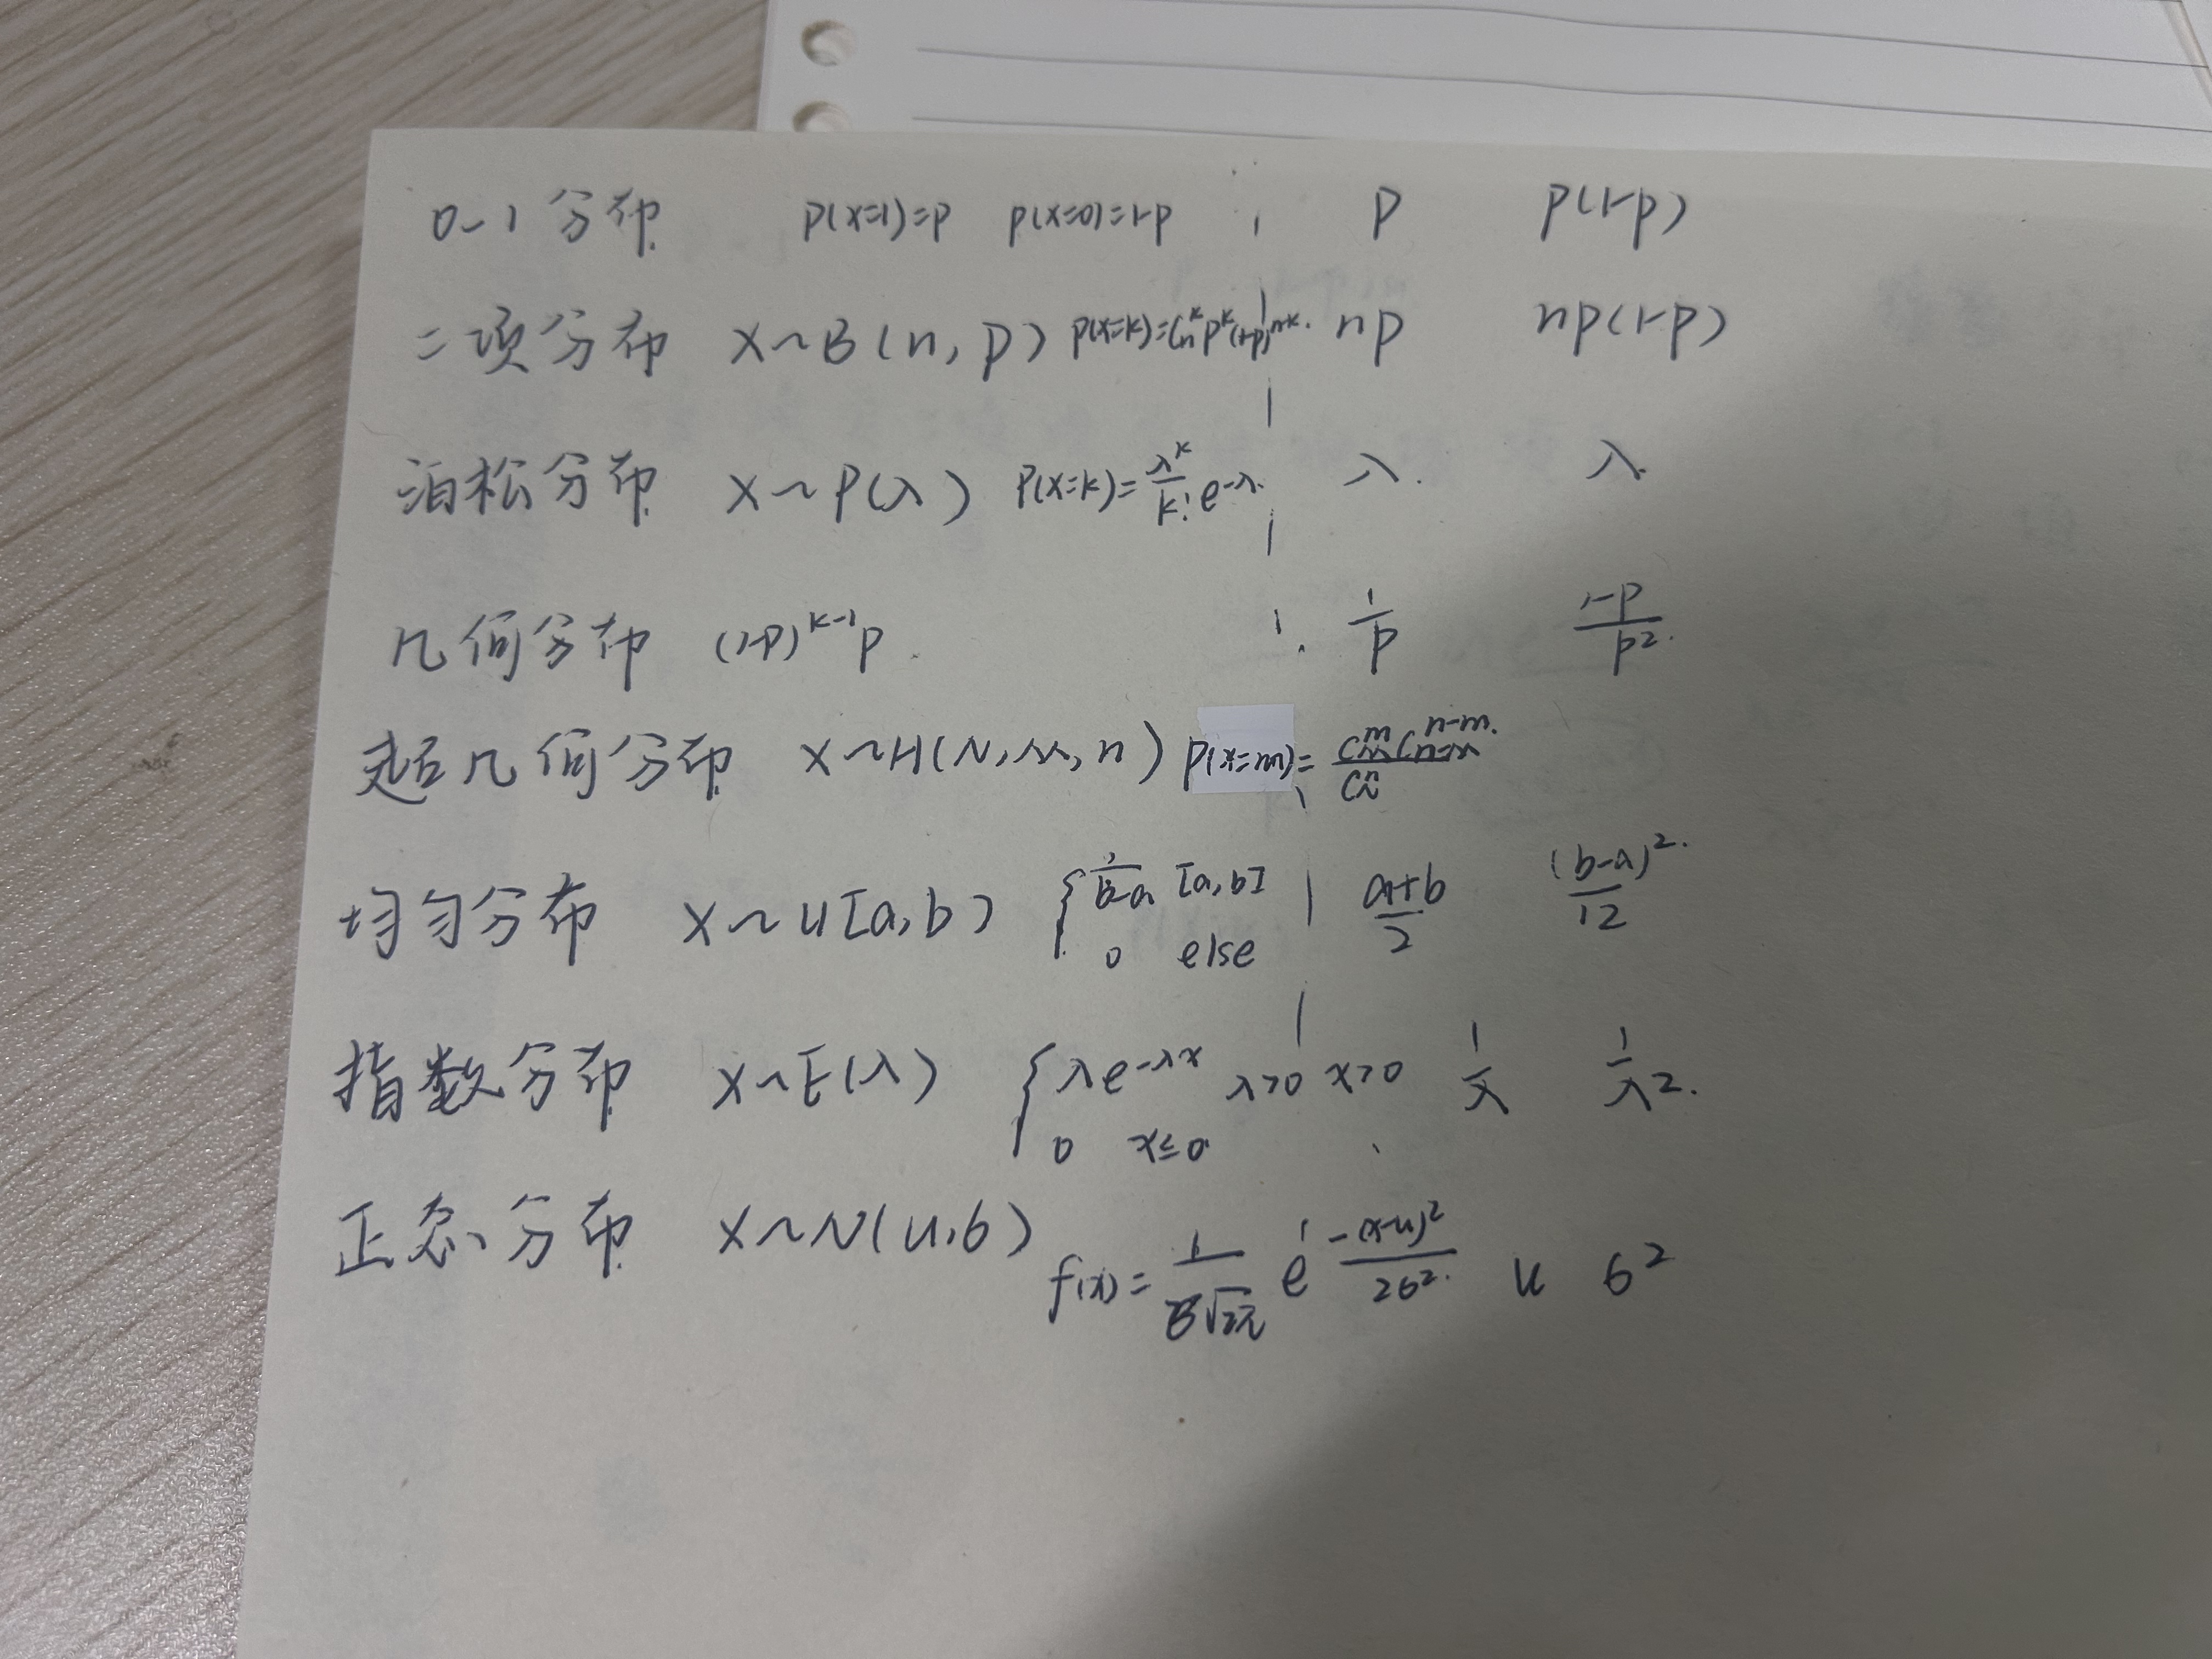 0-1分布 P(X=1)=P P(X=0)=1-P P P(1-P)
二项分布 X~B(n,p) P(X=k)=C_n^k P^k (1-P)^{n-k}. np np(1-p)
泊松分布 X~P(λ) P(X=k)=\frac{λ^k}{k!}e^{-λ}. λ. λ.
几何分布 (1-P)^{k-1}P. \frac{1}{P} \frac{1-P}{P^2}.
超几何分布 X~H(N,M,n) P(X=m)=\frac{C_M^m C_{n-M}^{n-m}.}{C_N^n}
均匀分布 X~U[a,b) { \frac{1}{b-a} [a,b] \frac{a+b}{2} \frac{(b-a)^2.}{12}
0 else
指数分布 X~E(λ) { λe^{-λx} λ>0 x>0 \frac{1}{λ} \frac{1}{λ^2}.
0 x≤0
正态分布 X~N(u,6) f(x)=\frac{1}{6\sqrt{2π}} e^{-\frac{(x-u)^2}{26^2}}. u 6^2